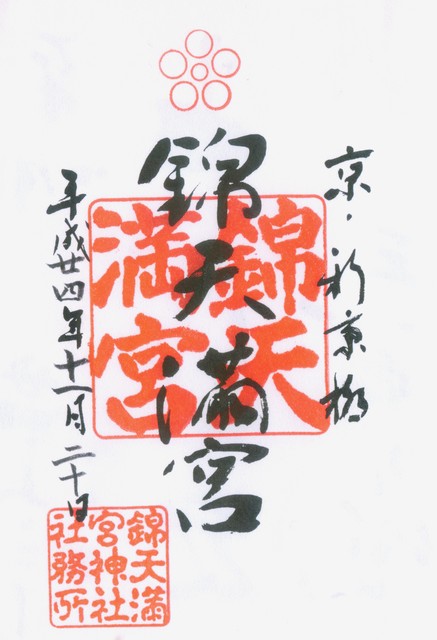 京・新京極
錦天満宮
錦天
満宮
平成廿四年十一月二十日
錦天満
宮神社
社務所